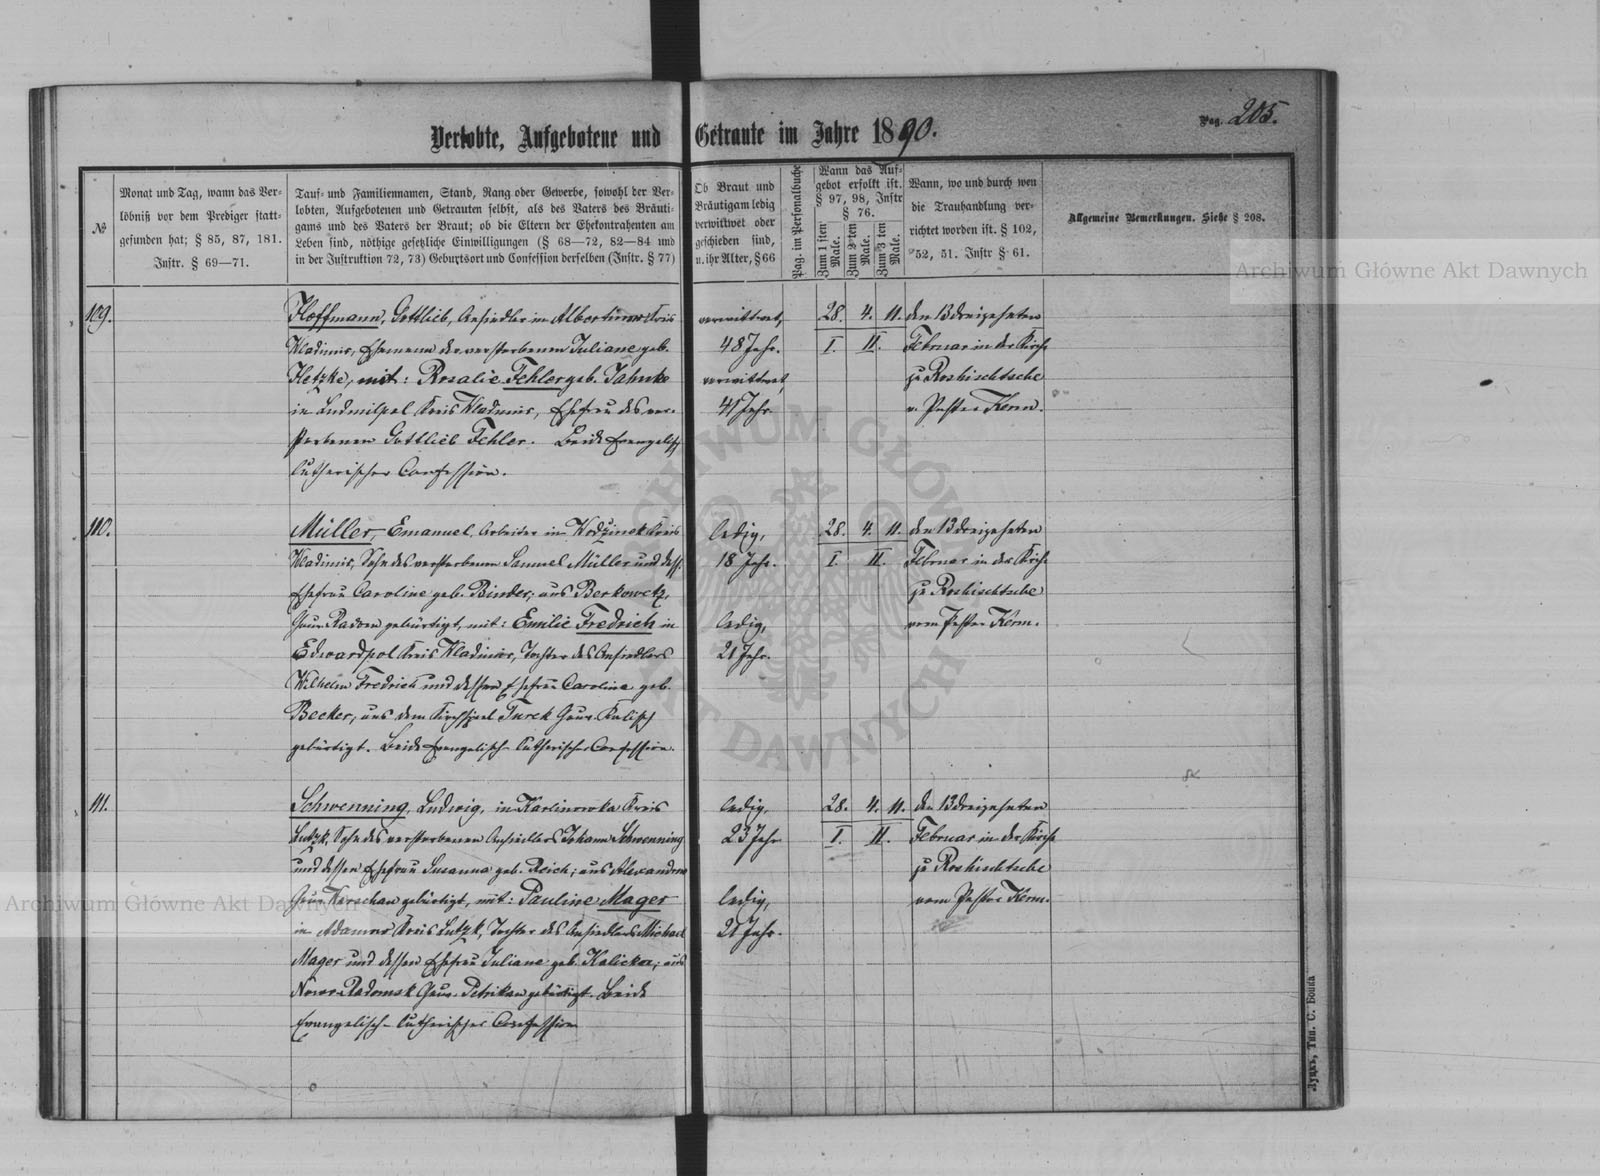 Verlobte, Aufgebotene und Getraute im Jahre 1890.
Pag. 205.
№
Monat und Tag, wann das Ver-
löbniß vor dem Prediger statt-
gefunden hat; § 85, 87, 181.
Instr. § 69—71.
Tauf- und Familiennamen, Stand, Rang oder Gewerbe, sowohl der Ver-
lobten, Aufgebotenen und Getrauten selbst, als des Vaters des Bräuti-
gams und des Vaters der Braut; ob die Eltern der Ehekontrahenten am
Leben sind, nöthige gesetzliche Einwilligungen (§ 68—72, 82—84 und
in der Instruktion 72, 73) Geburtsort und Confession derselben (Instr. § 77)
Ob Braut und
Bräutigam ledig
verwittwet oder
geschieden sind,
u. ihr Alter, § 66
Pag. im Personalbuche
Wann das Auf-
gebot erfolgt ist.
§ 97, 98, Instr
§ 76.
Zum 1 sten Male.
Zum 2 ten Male.
Zum 3 ten Male.
Wann, wo und durch wen
die Trauhandlung ver-
richtet worden ist. § 102,
52, 51. Instr § 61.
Allgemeine Bemerkungen. Siehe § 208.
109.
Hoffmann, Gottlieb, Ansiedler in Kreis
Wladimir, Ehemann der verstorbenen Juliane geb.
Hetzke, mit: Rosalie Fehler geb. Jahnke
in Ludmilpol Kreis Wladimir, Ehefrau des ver-
storbenen Gottlieb Fehler. Beide Evangelisch
lutherischer Confession.
verwittwet,
48 Jahr.
verwittwet
41 Jahr.
28. 4. 11.
I. II.
den 13 dreizehnten
Februar in der Kirche
zu Roshischtsche
v. Pastor Kerm.
110.
Müller, Emanuel, Arbeiter in Wodzinek Kreis
Wladimir, Sohn des verstorbenen Samuel Müller und dess.
Ehefrau Caroline geb. Binder; aus Berkowetz,
Gouv. Radom gebürtigt, mit: Emilie Fredrich in
Edwardpol Kreis Wladimir, Tochter des Ansiedlers
Wilhelm Fredrich und dessen Ehefrau Caroline geb.
Becker, aus dem Kirchspiel Turek Gouv. Kalisch
gebürtigt. Beide Evangelisch-lutherischer Confession.
ledig,
18 Jahr.
ledig,
21 Jahr.
28. 4. 11.
I. II.
den 13 dreizehnten
Februar in der Kirche
zu Roshischtsche
vom Pastor Kerm.
111.
Schwenning, Ludwig, in Karlinowka Kreis
Lutzk, Sohn des verstorbenen Ansiedlers Johann Schwenning
und dessen Ehefrau Susanna geb. Reich; aus
Gouv. Warschau gebürtigt, mit: Pauline Mager
in Adamow Kreis Lutzk, Tochter des Ansiedlers Michael
Mager und dessen Ehefrau Juliane geb. aus
Nowo-Radomsk Gouv. Petrikau gebürtigt. Beide
Evangelisch-lutherischer Confession
ledig,
23 Jahr
ledig,
21 Jahr.
28. 4. 11.
I. II.
den 13 dreizehnten
Februar in der Kirche
zu Roshischtsche
vom Pastor Kerm.
Луцкъ, Тип. С. Бойка
Archiwum Główne Akt Dawnych
Archiwum Główne Akt Dawnych
ARCHIWUM GŁÓWNE AKT DAWNYCH